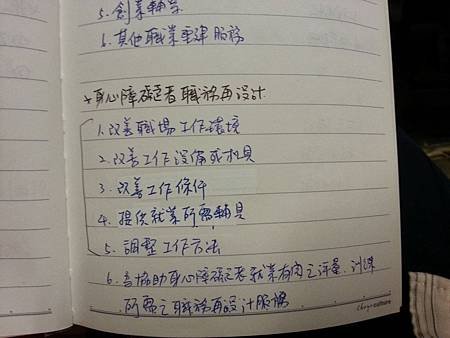 5. 創業輔導
6. 其他職業重建服務
身心障礙者職務再設計
1. 改善職場工作環境
2. 改善工作設備或机具
3. 改善工作條件
4. 提供就業所需輔具
5. 調整工作方法
6. 為協助身心障礙者就業有関之評量、訓練
所需之職務再設計服務